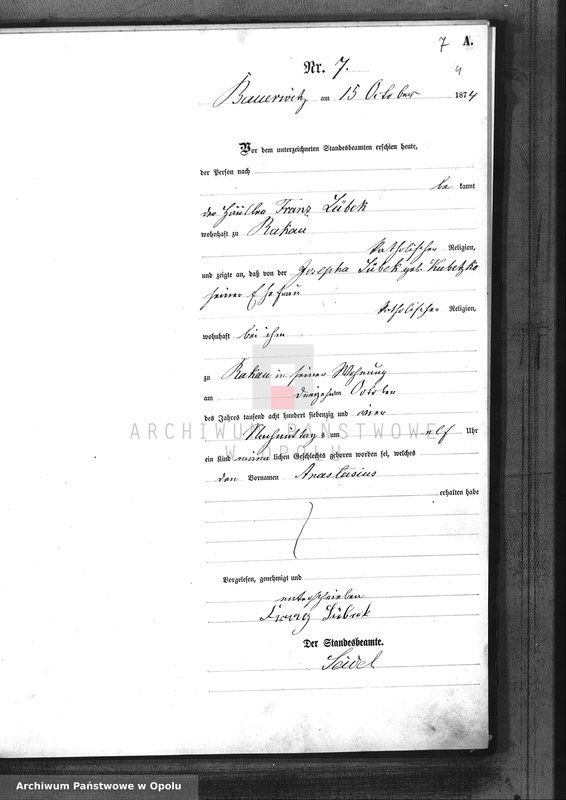 7 A.
4
Nr. 7.
Bauerwitz am 15 October 1874
Vor dem unterzeichneten Standesbeamten erschien heute,
der Person nach
be kannt
der Häusler Franz Lübek
wohnhaft zu Rakau
katholischer Religion,
und zeigte an, daß von der Josepha Lübek geb. Kubetzko
seiner Ehefrau
katholischer Religion,
wohnhaft bei ihm
zu Rakau in seiner Wohnung
am dreizehnten October
des Jahres tausend acht hundert siebenzig und vier
Nachmittags um elf Uhr
ein Kind männlichen Geschlechts geboren worden sei, welches
den Vornamen Anastasius
erhalten habe
Vorgelesen, genehmigt und
unterschrieben
Lübek
Der Standesbeamte.
Seidel
ARCHIWUM PAŃSTWOWE
W OPOLU
Archiwum Państwowe w Opolu